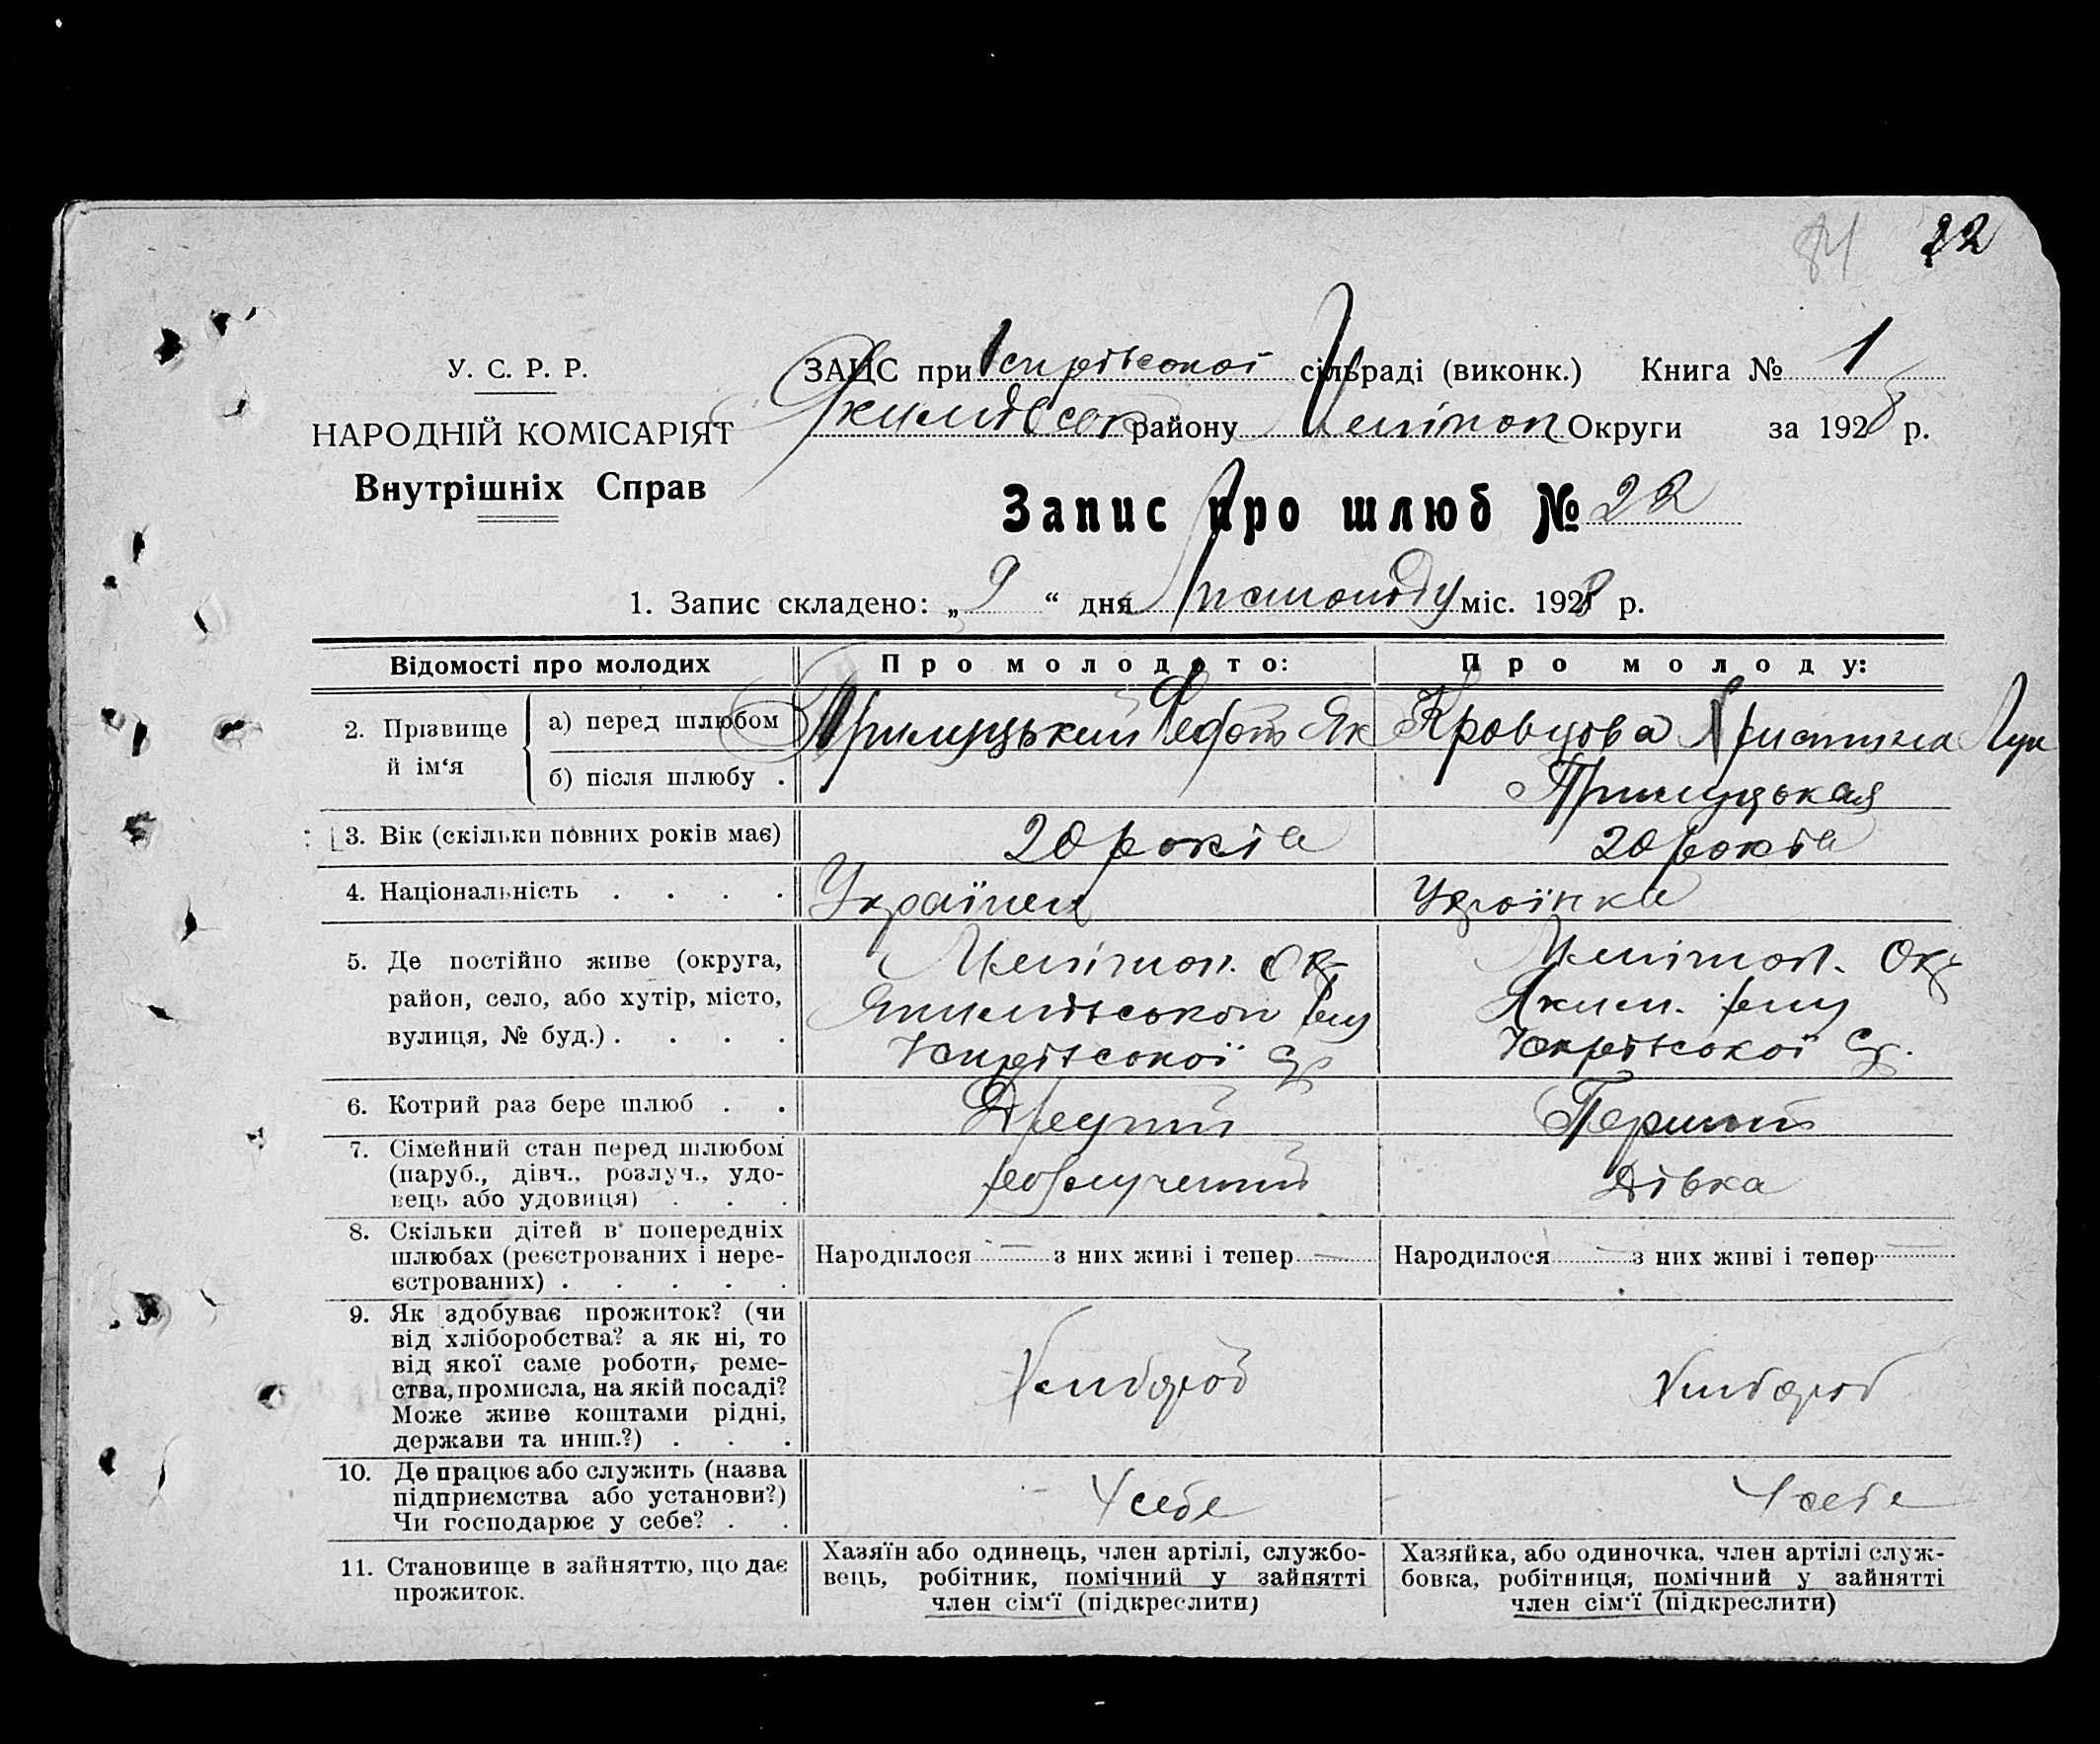 84 22
У. С. Р. Р.
НАРОДНІЙ КОМІСАРІЯТ
Внутрішніх Справ
ЗАЦС при сільраді (виконк.) Книга № 1
Якимівськ району Меліпоп Округи за 1928 р.
Запис про шлюб № 22
1. Запис складено: „ 9 “ дня листопаду міс. 1928 р.
Відомості про молодих
Про молодого:
Про молоду:
2. Прізвище й ім‘я
а) перед шлюбом
Прилуцький Федот Як
Кравцова Христина Лук
б) після шлюбу .
Прилуцькая
3. Вік (скільки повних років має)
20 років
20 років
4. Національність . . . .
Українец
Українка
5. Де постійно живе (округа,
район, село, або хутір, місто,
вулиця, № буд.) . . . .
Меліпоп. Окр
Якимівськой
Меліпоп. Окр
Яким.
6. Котрий раз бере шлюб . .
Другий
Перший
7. Сімейний стан перед шлюбом
(паруб., дівч., розлуч., удо-
вець або удовиця) . . .
Дівка
8. Скільки дітей в попередніх
шлюбах (реєстрованих і нере-
єстрованих) . . . . .
Народилося — з них живі і тепер —
Народилося — з них живі і тепер —
9. Як здобуває прожиток? (чи
від хліборобства? а як ні, то
від якої саме роботи, реме-
ства, промисла, на якій посаді?
Може живе коштами рідні,
держави та инш.?) . . .
Хлибороб
Хлибороб
10. Де працює або служить (назва
підприємства або установи?)
Чи господарює у себе? . .
У себе
У себе
11. Становище в зайняттю, що дає
прожиток.
Хазяїн або одинець, член артілі, службо-
вець, робітник, помічний у зайнятті
член сім‘ї (підкреслити)
Хазяйка, або одиночка, член артілі служ-
бовка, робітниця, помічний у зайнятті
член сім‘ї (підкреслити)